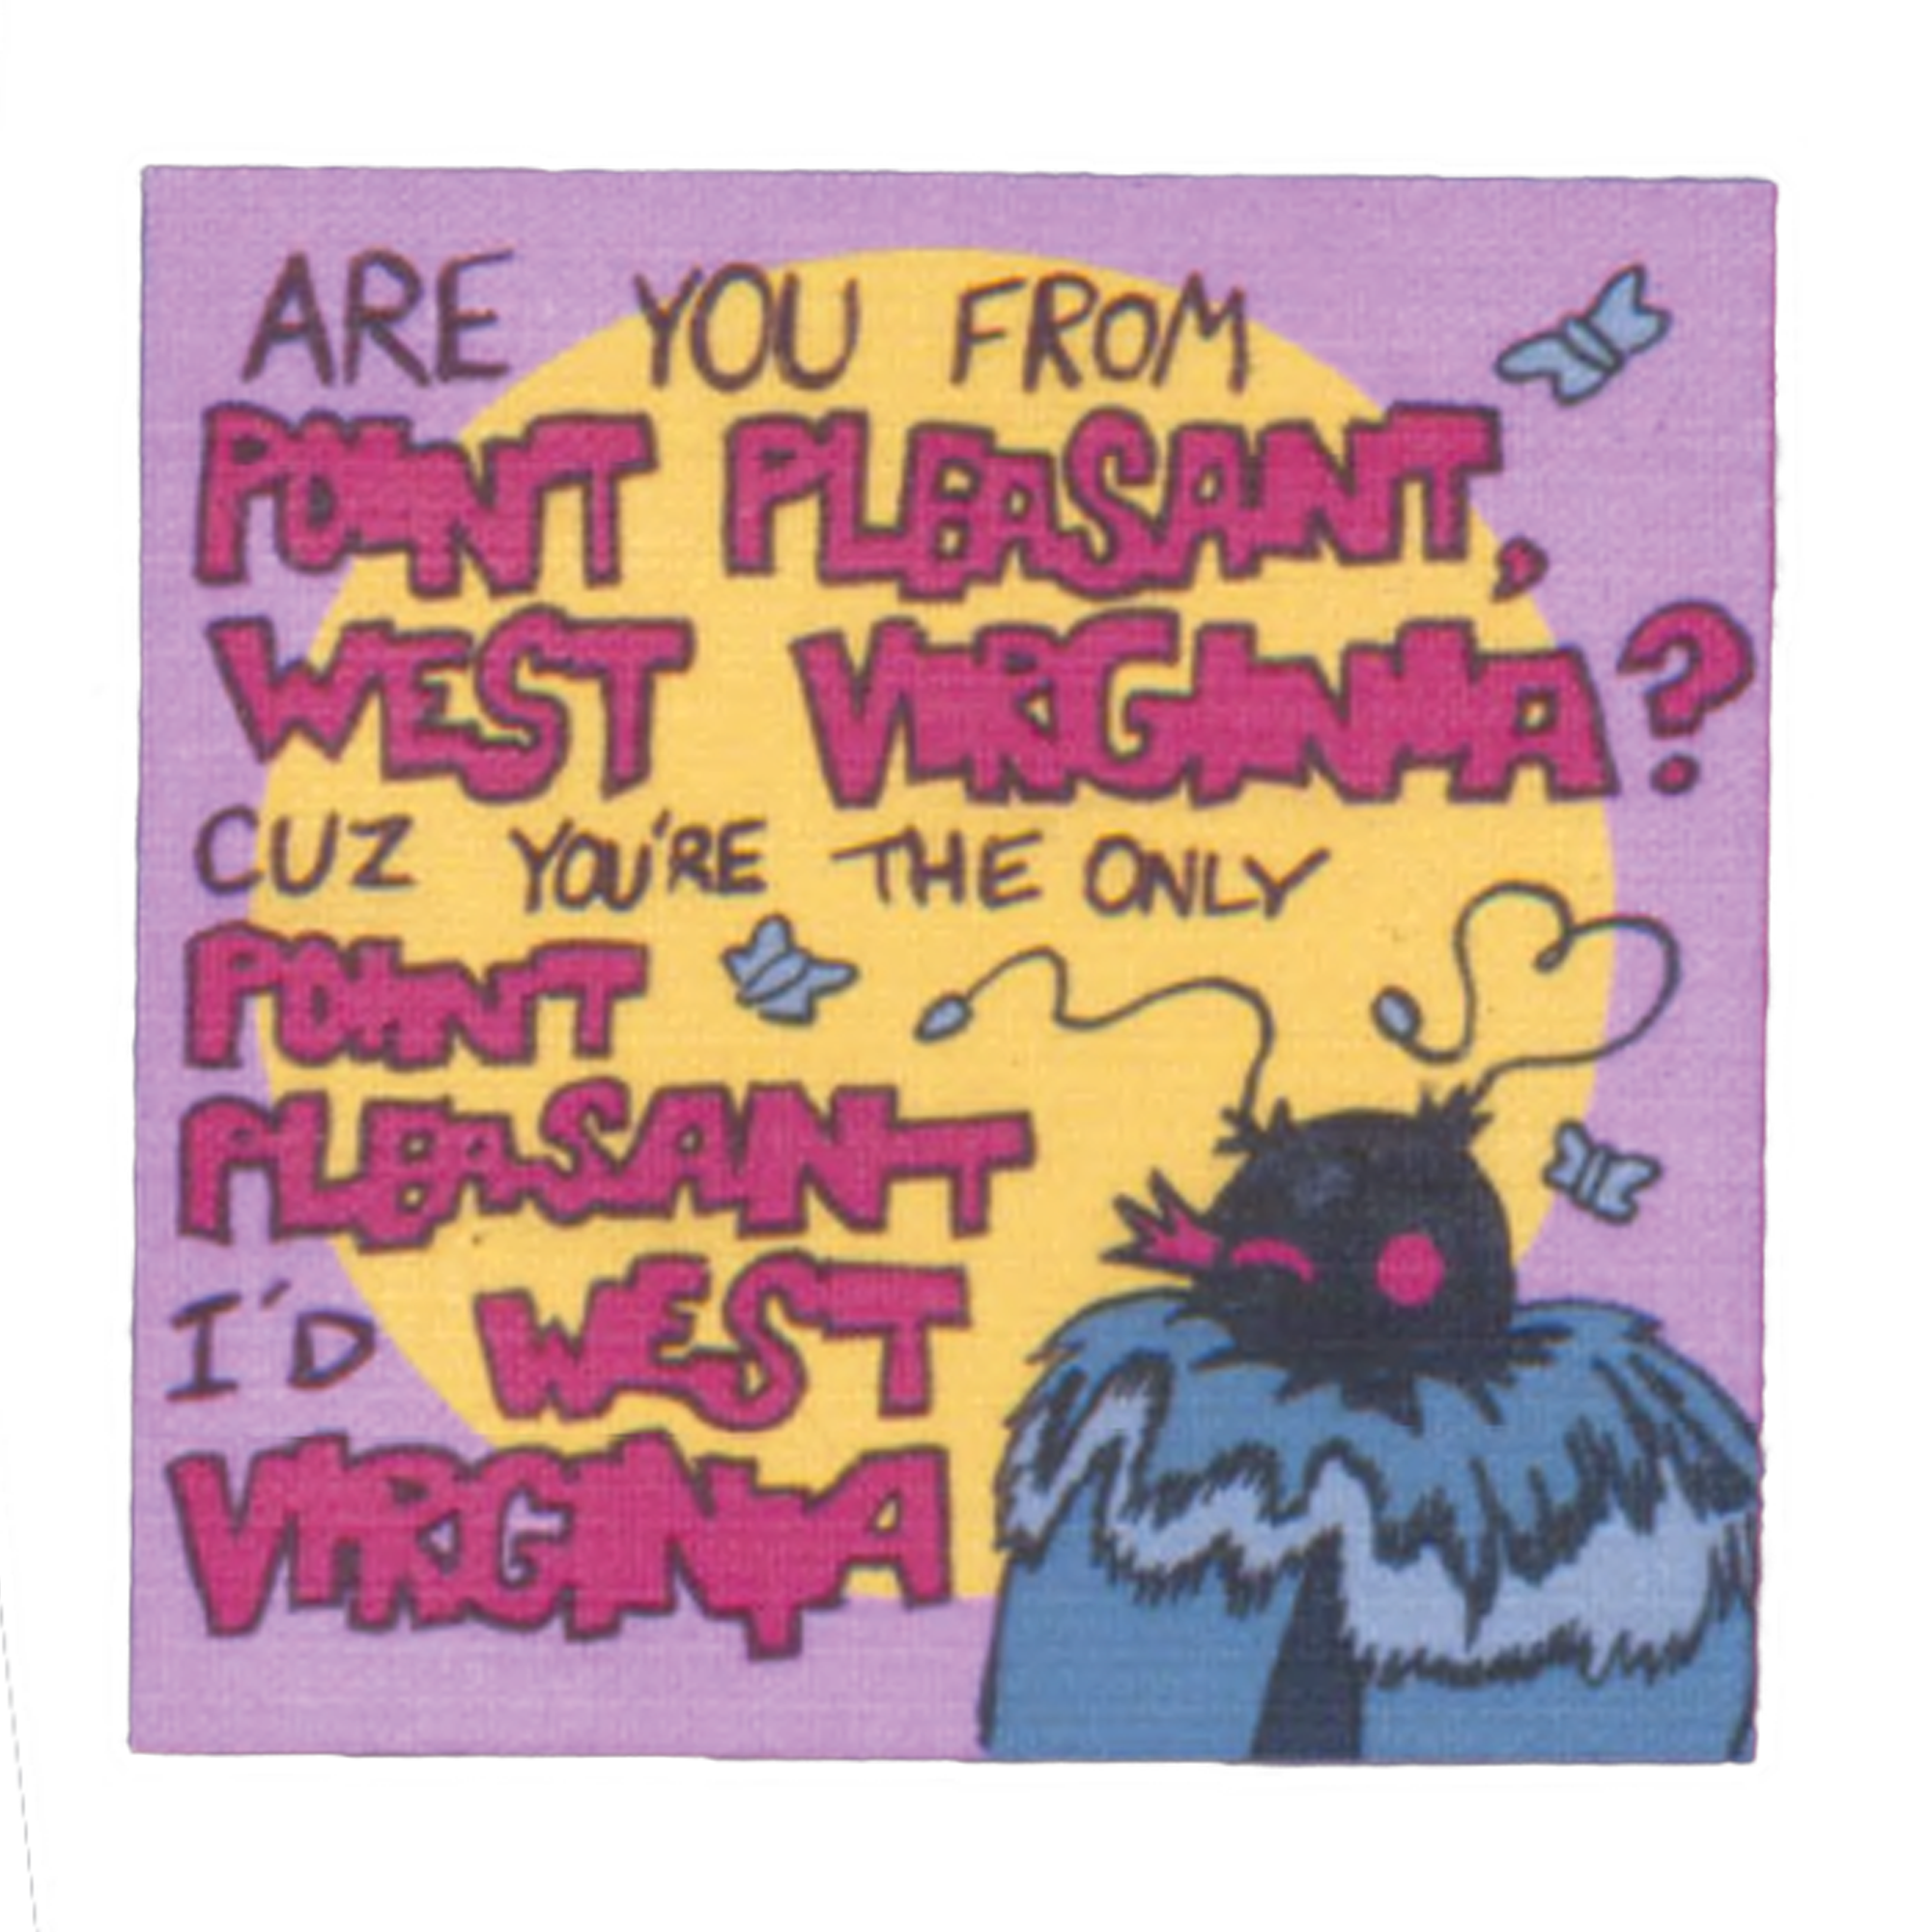 ARE YOU FROM
POINT PLEASANT,
WEST VIRGINIA?
CUZ YOU'RE THE ONLY
POINT
PLEASANT
I'D WEST
VIRGINIA